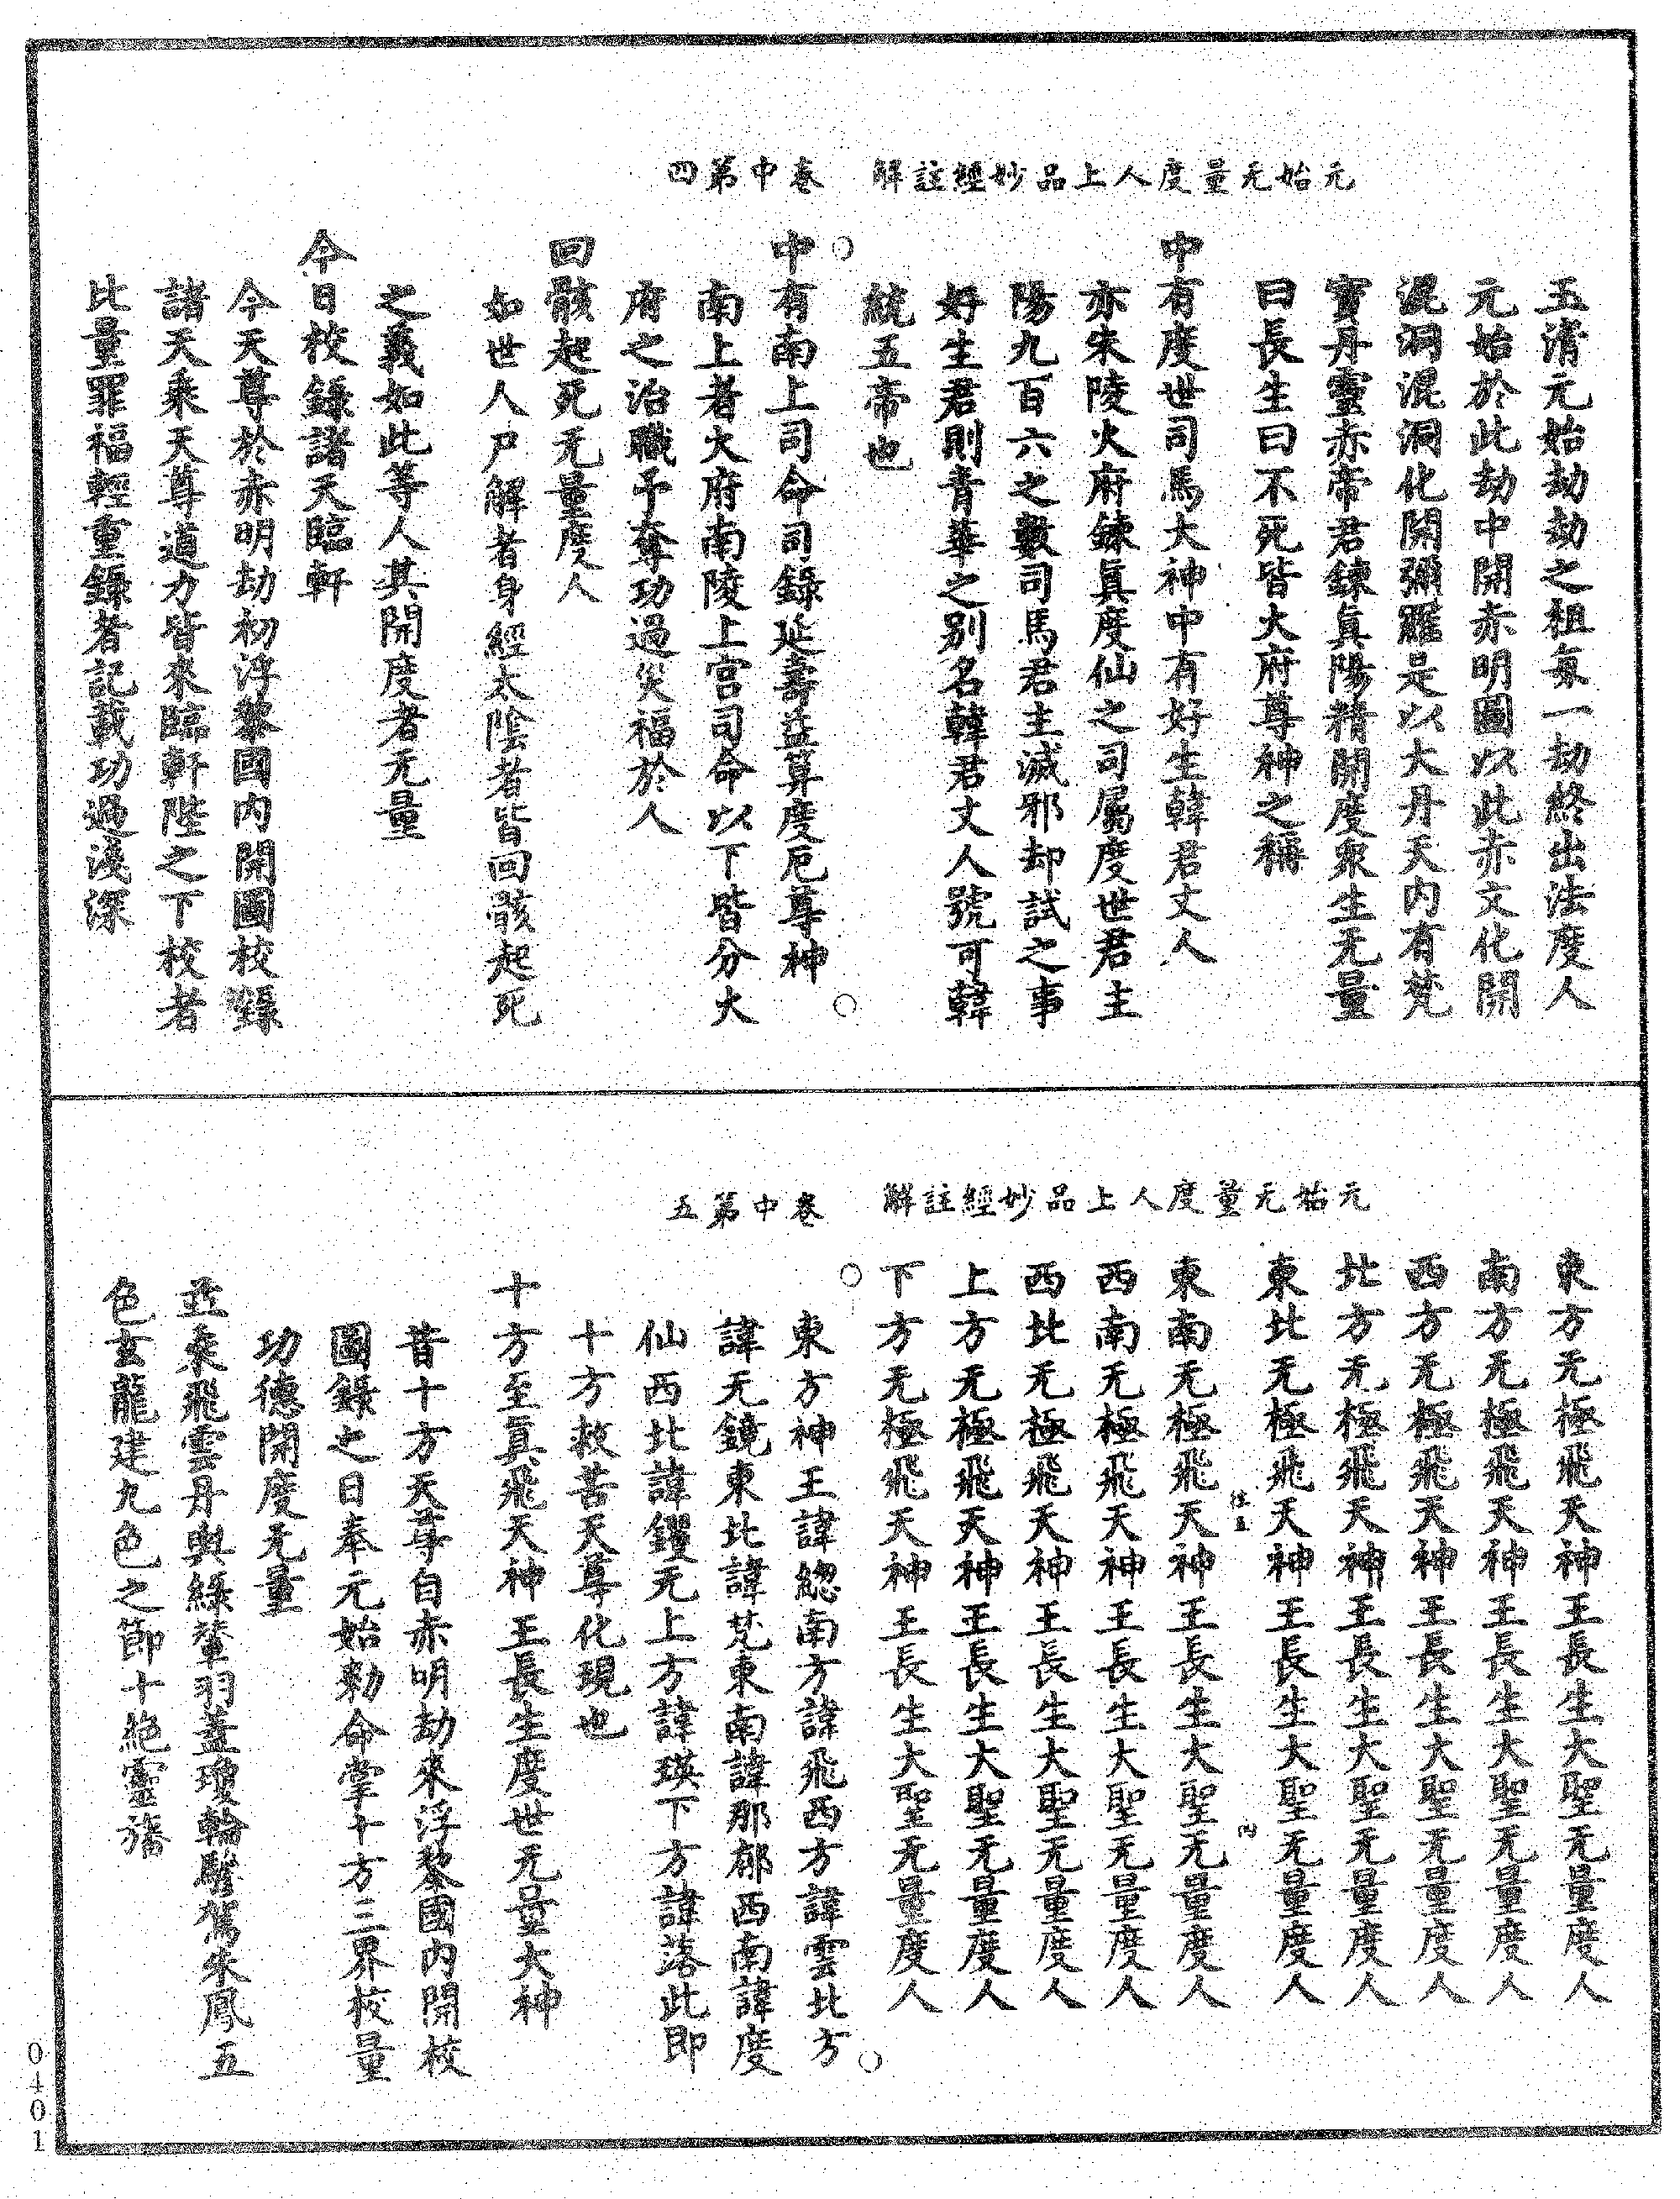 元始无量度人上品妙經註解　卷中第四
玉清元始劫劫之祖氣一劫終出法度人
元始於此劫中開赤明圖以此赤文化開
混洞混洞化開彌羅是以大丹天內有梵
寶丹靈赤帝君鍊眞陽精開度衆生无量
曰長生曰不死皆大府尊神之稱
中有度世司馬大神中有好生韓君丈人
亦朱陵火府鍊眞度仙之司屬度世君主
陽九百六之數司馬君主滅邪却試之事
好生君則青華之别名韓君丈人號可韓
統五帝也
中有南上司命司錄延壽益算度厄尊神
南上者火府南陵上宫司命以下皆分火
府之治職予奪功過災福於人
回骸起死无量度人
如世人尸解者身經太陰者皆回骸起死
之義如此等人其開度者无量
今日校錄諸天臨軒
今天尊於赤明劫初浮黎國內開圖校錄
諸天乘天尊道力皆來臨軒陛之下校者
比量罪福輕重錄者記載功過淺深
元始无量度人上品妙經註解　卷中第五
東方无極飛天神王長生大聖无量度人
南方无極飛天神王長生大聖无量度人
西方无極飛天神王長生大聖无量度人
北方无極飛天神王長生大聖无量度人
東北无極飛天神王長生大聖无量度人
東南无極飛天神王長生大聖无量度人
西南无極飛天神王長生大聖无量度人
西北无極飛天神王長生大聖无量度人
上方无極飛天神王長生大聖无量度人
下方无極飛天神王長生大聖无量度人
東方神王諱總南方諱飛西方諱雲北方
諱无鏡東北諱梵東南諱那郁西南諱度
仙西北諱钁无上方諱瑛下方諱落此即
十方救苦天尊化現也
十方至眞飛天神王長生度世无量大神
昔十方天尊自赤明劫來浮黎國內開校
圖錄之日奉元始勑命掌十方三界校量
功德開度无量
並乘飛雲丹輿綠輦羽蓋瓊輪驂駕朱鳳五
色玄龍建九色之節十絶靈旛
0401